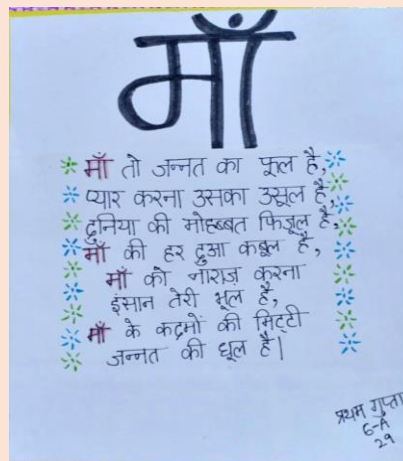 माँ
माँ तो जन्नत का फूल है,
प्यार करना उसका उसूल है,
दुनिया की मोहब्बत फिजूल है,
माँ की हर दुआ कबूल है,
माँ को नाराज़ करना
इंसान तेरी भूल है,
माँ के कदमों की मिट्टी
जन्नत की धूल है।
प्रथम गुप्ता
6-A
29